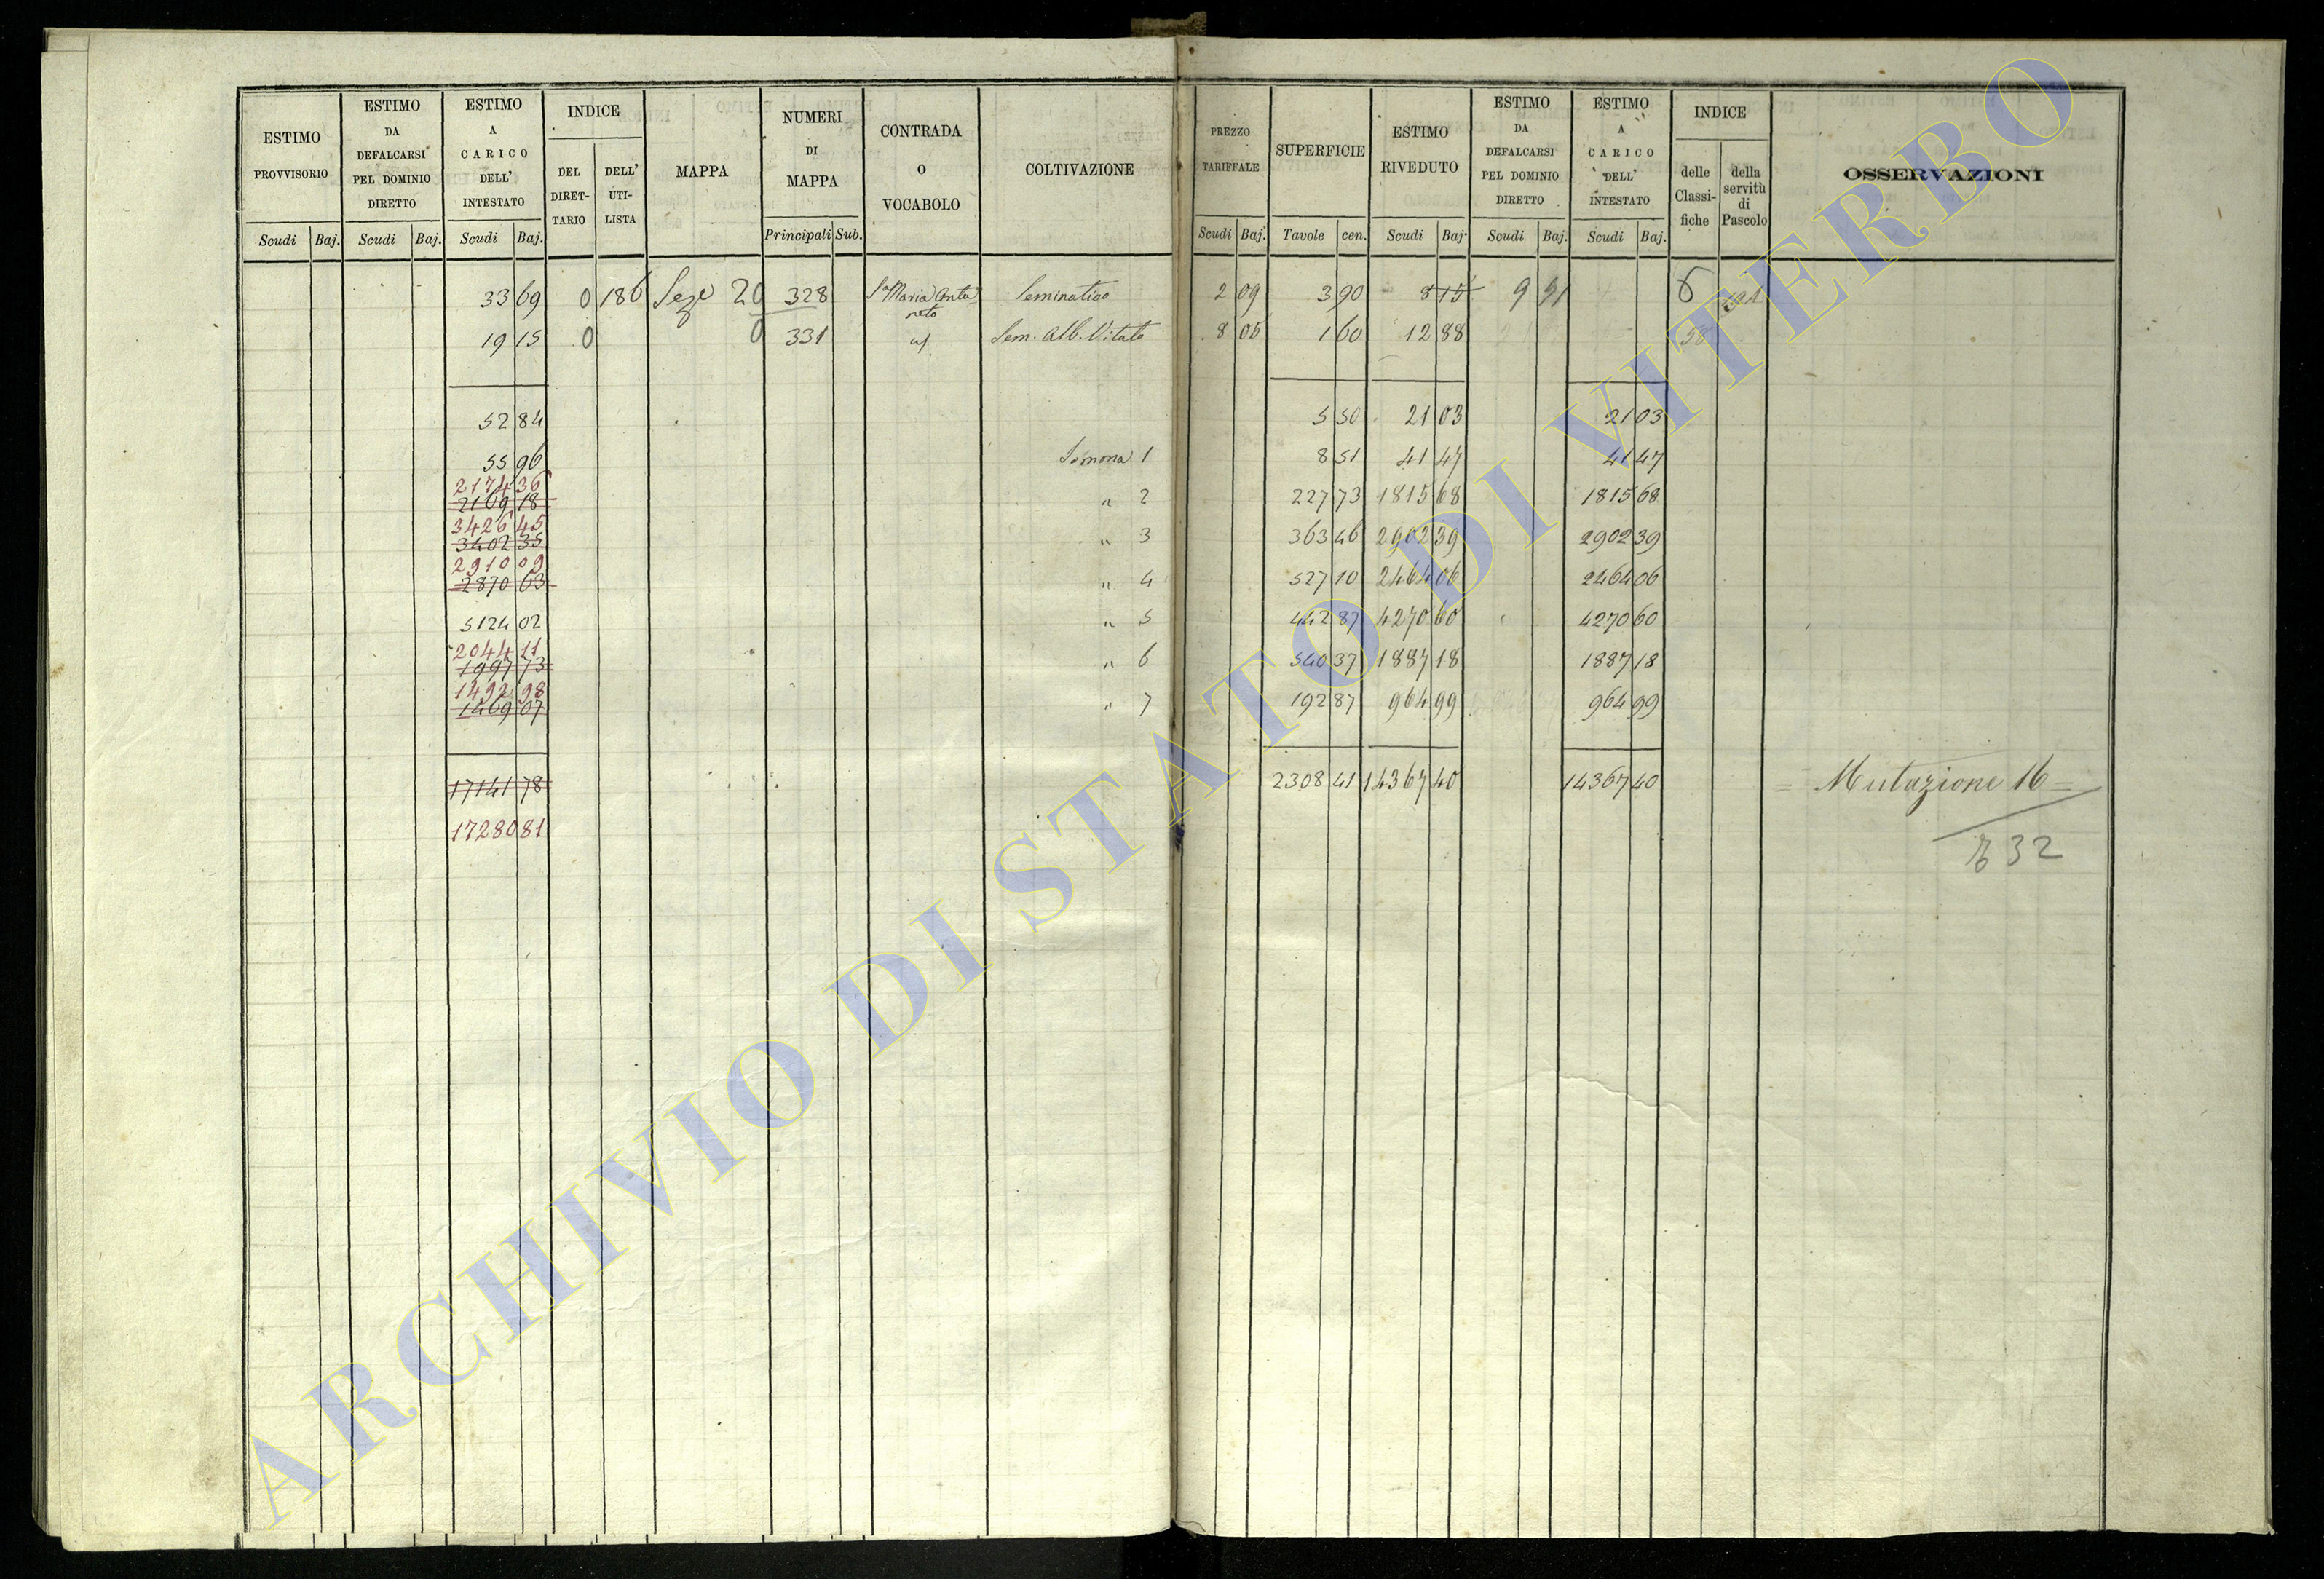 ESTIMO PROVVISORIO
ESTIMO DA DEFALCARSI PEL DOMINIO DIRETTO
ESTIMO A CARICO DELL' INTESTATO
INDICE
DEL DIRET-TARIO
DELL' UTI-LISTA
MAPPA
NUMERI DI MAPPA
CONTRADA O VOCABOLO
COLTIVAZIONE
PREZZO TARIFFALE
SUPERFICIE
ESTIMO RIVEDUTO
ESTIMO DA DEFALCARSI PEL DOMINIO DIRETTO
ESTIMO A CARICO DELL' INTESTATO
INDICE
delle Classi-fiche
della servitù di Pascolo
OSSERVAZIONI
Scudi Baj. Scudi Baj. Scudi Baj. Principali Sub. Scudi Baj. Tavole cen. Scudi Baj. Scudi Baj. Scudi Baj.
33 69 0 186 20 328 Sa Maria Seminativo 2 09 3 90 8 15 9 91 6
19 15 0 0 331 Sem. Alb. Vitato 8 05 1 60 12 88
52 84 5 50 21 03 21 03
55 96 Somma 1 8 51 41 47 41 47
2174 36
2169 18 " 2 227 73 1815 68 1815 68
3426 45
3402 35 " 3 363 46 2902 39 2902 39
2910 09
2870 63 " 4 527 10 2464 06 2464 06
5124 02 " 5 442 87 4270 60 4270 60
2044 11
1997 73 " 6 540 37 1887 18 1887 18
1492 98
1469 07 " 7 192 87 964 99 964 99
17141 78 2308 41 14367 40 14367 40 = Mutazione 16 =
17280 81 32
ARCHIVIO DI STATO DI VITERBO